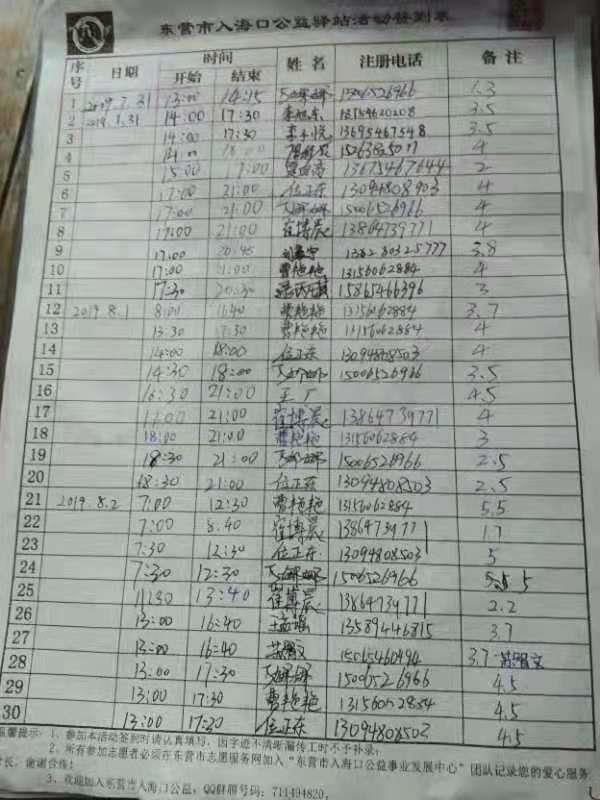 东营市入海口公益驿站活动签到表
序号 日期 时间 开始 结束 姓名 注册电话 备注
1 2019.7.31 13:00 14:15 1506526966 1.3
2 2019.7.31 14:00 17:30 3.5
3 14:00 17:30 13695467548 3.5
4 14:00 18:00 4
5 15:00 17:00 13675467644 2
6 17:00 21:00 位正东 13094808903 4
7 17:00 21:00 15006526966 4
8 17:00 21:00 崔博晨 13864739771 4
9 17:00 20:45 3.8
10 17:00 21:00 曹艳艳 13156062884 4
11 17:30 20:30 15865466396 3
12 2019.8.1 8:00 11:40 曹艳艳 13156062884 3.7
13 13:30 17:30 曹艳艳 13156062884 4
14 14:00 18:00 位正东 13094808503 4
15 14:30 18:00 15006526966 3.5
16 16:30 21:00 4.5
17 17:00 21:00 崔博晨 13864739771 4
18 18:00 21:00 曹艳艳 13156062884 3
19 18:30 21:00 15006526966 2.5
20 18:30 21:00 位正东 13094808503 2.5
21 2019.8.2 7:00 12:30 曹艳艳 13156062884 5.5
22 7:00 8:40 崔博晨 13864739771 1.7
23 7:30 12:30 位正东 13094808503 5
24 7:30 12:30 15006526966 5
25 11:30 13:40 崔博晨 13864739771 2.2
26 13:00 16:40 王孟瑶 13589446815 3.7
27 13:00 16:40 15065460494 3.7
28 13:00 17:30 15006526966 4.5
29 13:00 17:30 曹艳艳 13156062884 4.5
30 13:00 17:30 位正东 13094808503 4.5
温馨提示：1、参加本活动签到时请认真填写，因字迹不清晰漏传工时不予补录；
2、所有参加志愿者必须在东营市志愿服务网加入“东营市入海口公益事业发展中心”团队记录您的爱心服务
时长，谢谢合作！
3、欢迎加入东营市入海口公益，QQ群群号码：711494820。